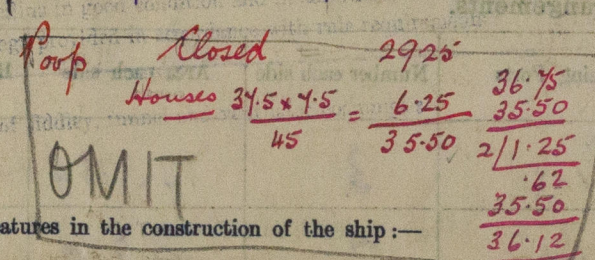 Poop Closed 29.25
Houses 37.5 x 7.5 / 45 = 6.25
35.50
36.75
35.50
2/1.25
.62
35.50
36.12
OMIT
atures in the construction of the ship :—